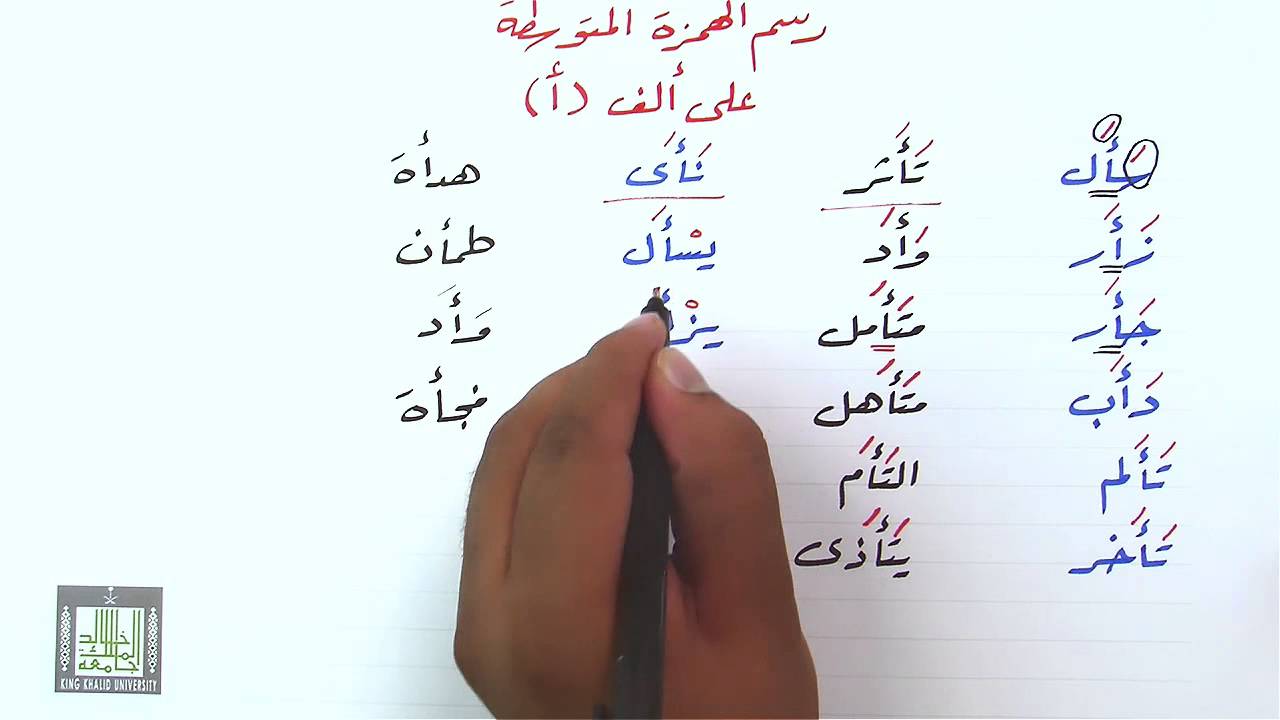 رسم الهمزة المتوسطة
على ألف (أ)
سَأَل تَأَثر نَأَى هدأة
زَأَر وَأَد يسْأَل طمأن
جَأَر متَأَمل وَأَد
دَأَب متَأَهل فجأة
تَأَلم التَأَم
تَأَخر يتَأَذى
جامعة الملك خالد
KING KHALID UNIVERSITY